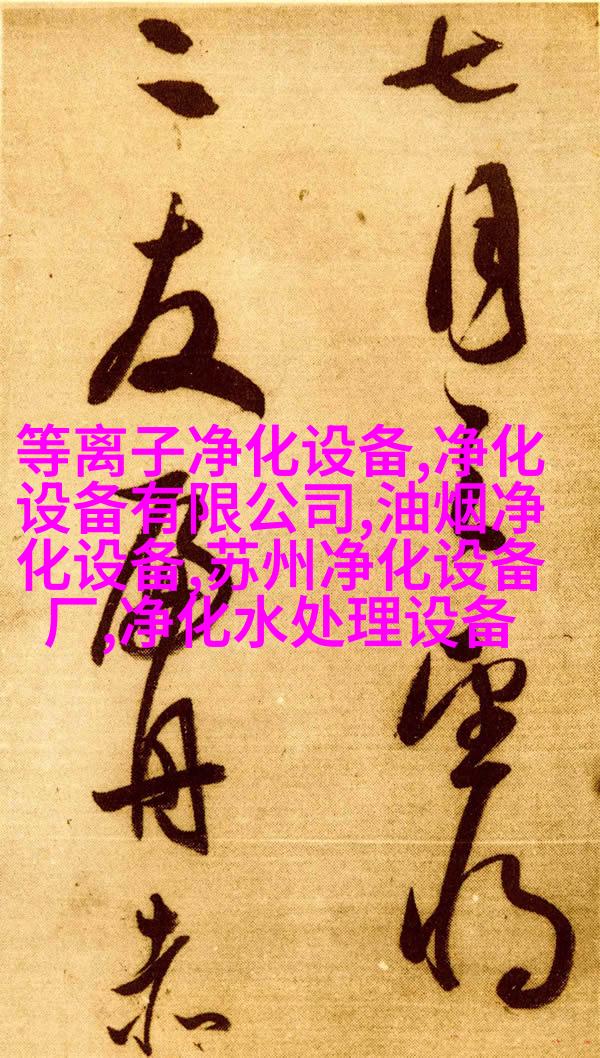 等离子净化设备,净化
设备有限公司,油烟净
化设备,苏州净化设备
厂,净化水处理设备
七月望
二友舟赤